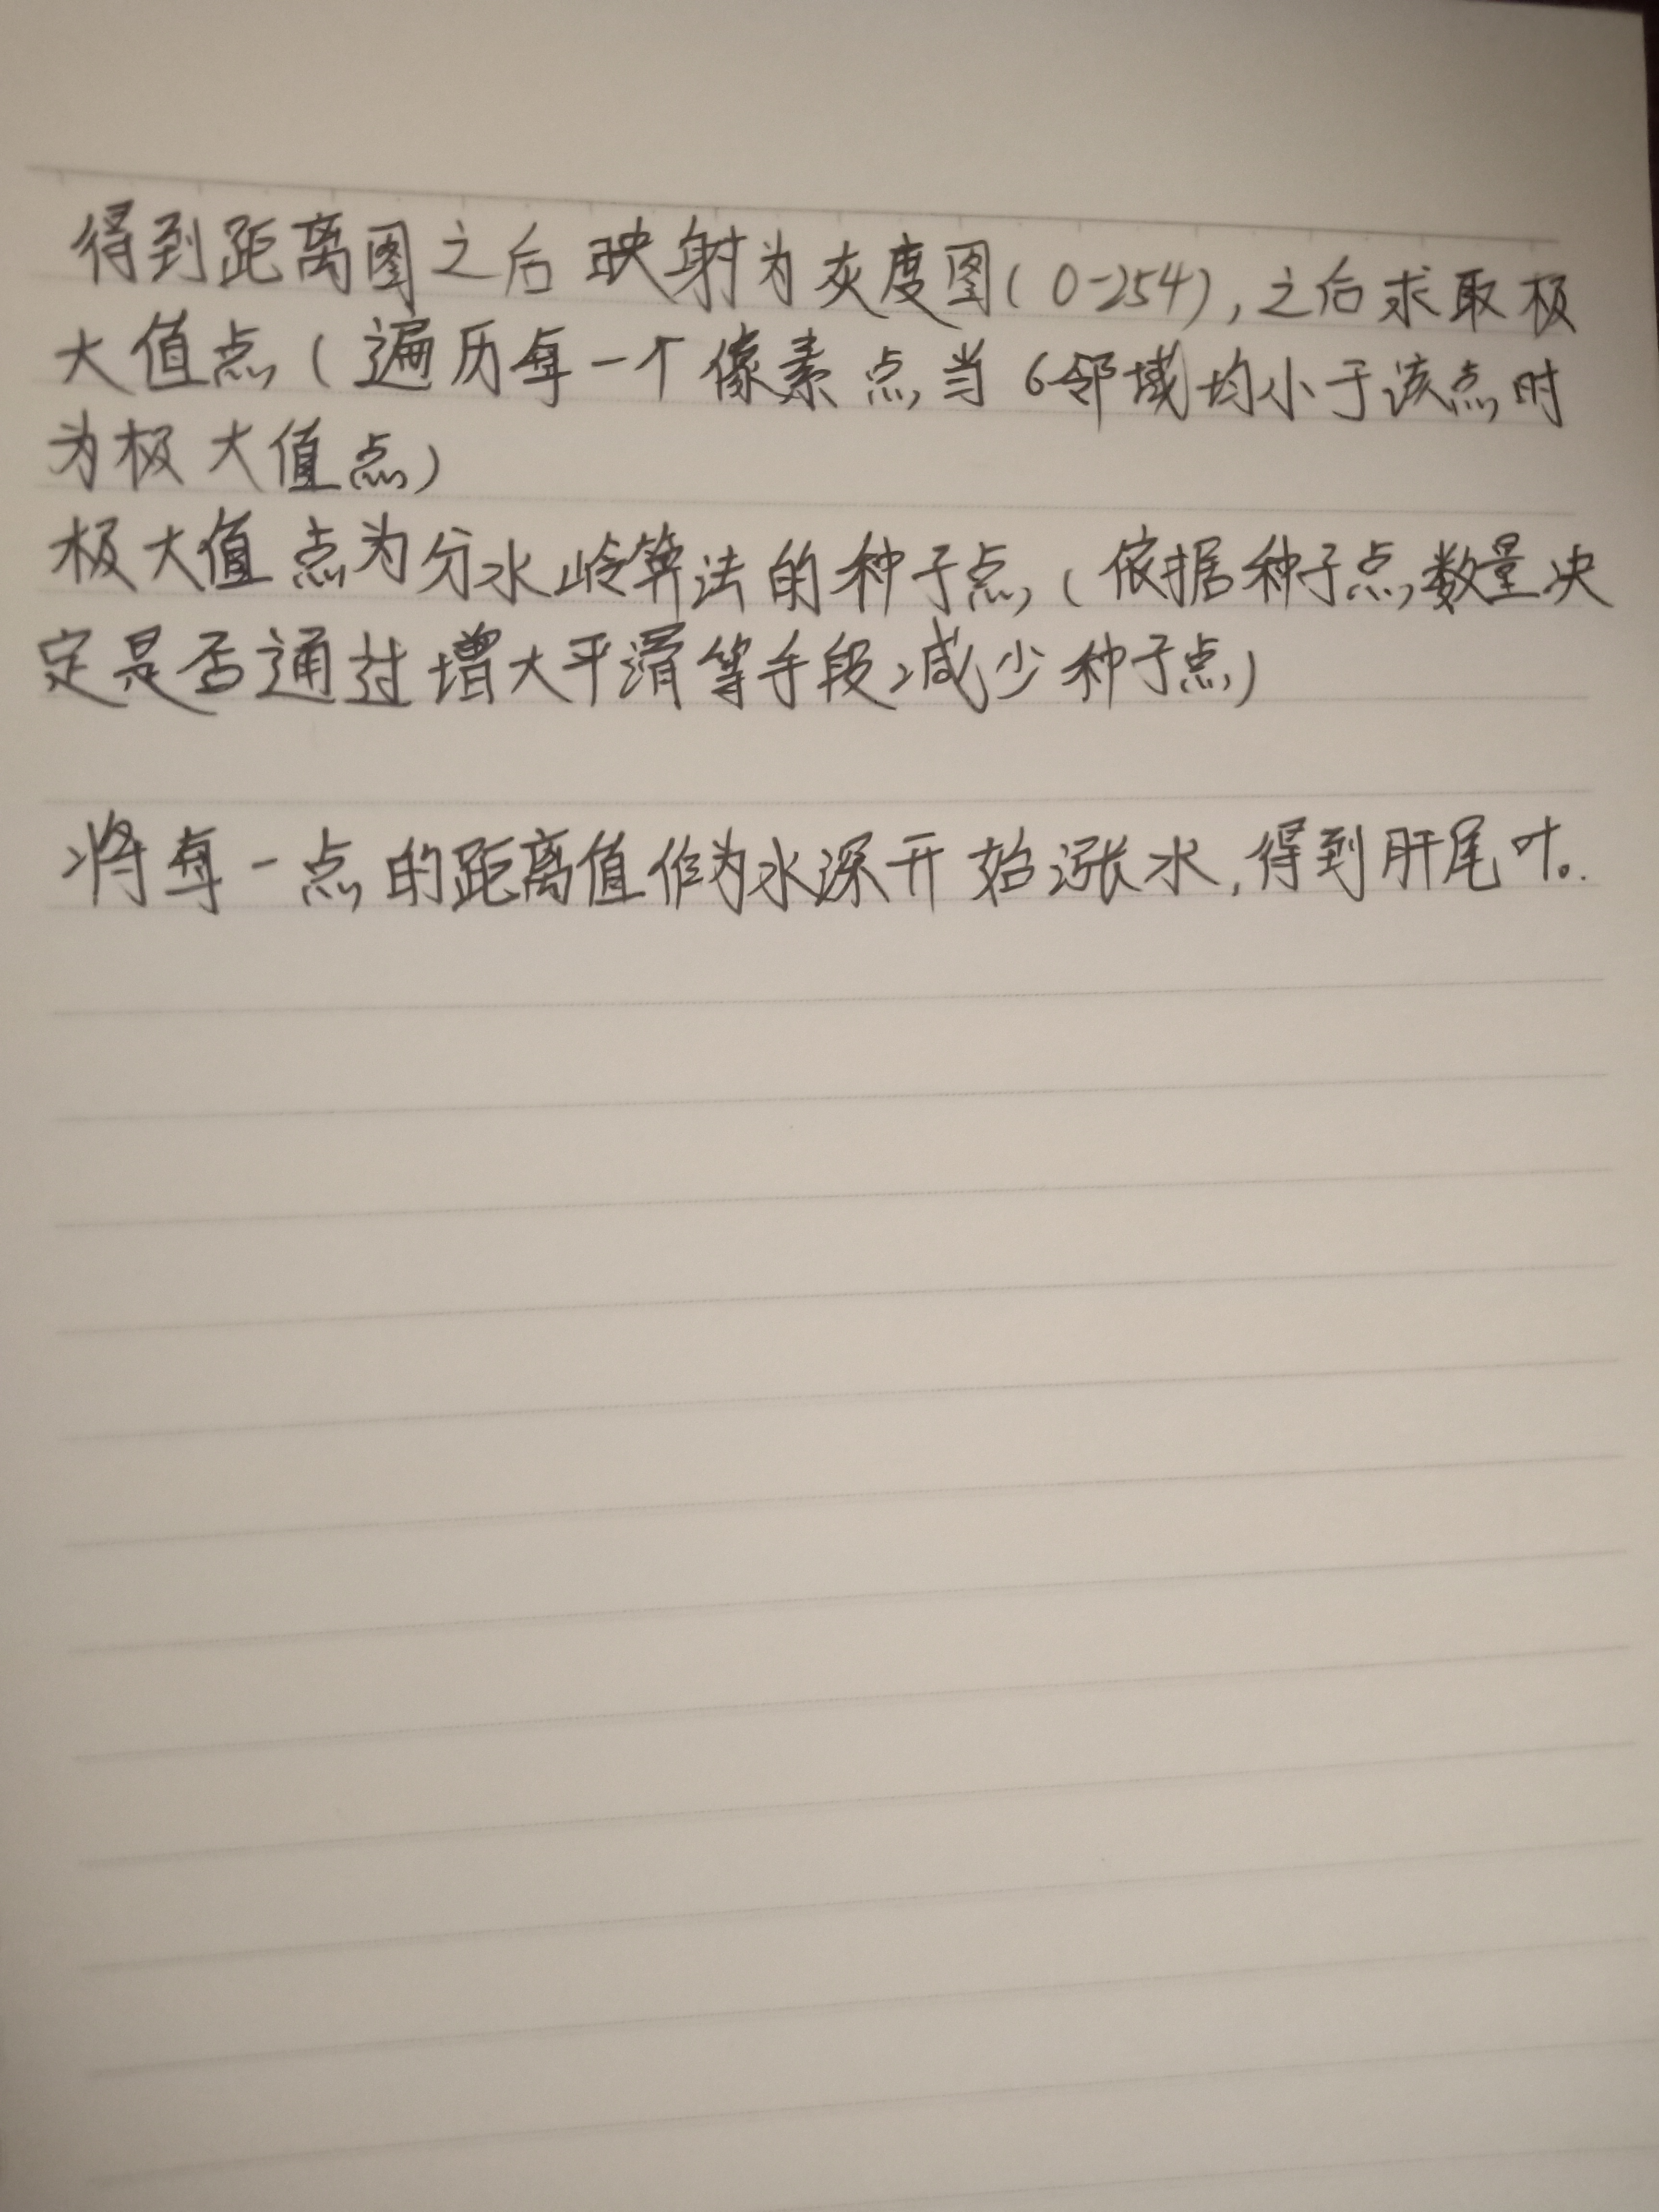 得到距离图之后映射为灰度图(0-254),之后求取极
大值点(遍历每一个像素点,当6邻域均小于该点时
为极大值点)
极大值点为分水岭算法的种子点,(依据种子点数量决
定是否通过增大平滑等手段减少种子点)
将每一点的距离值作为水深开始涨水,得到肝尾叶。